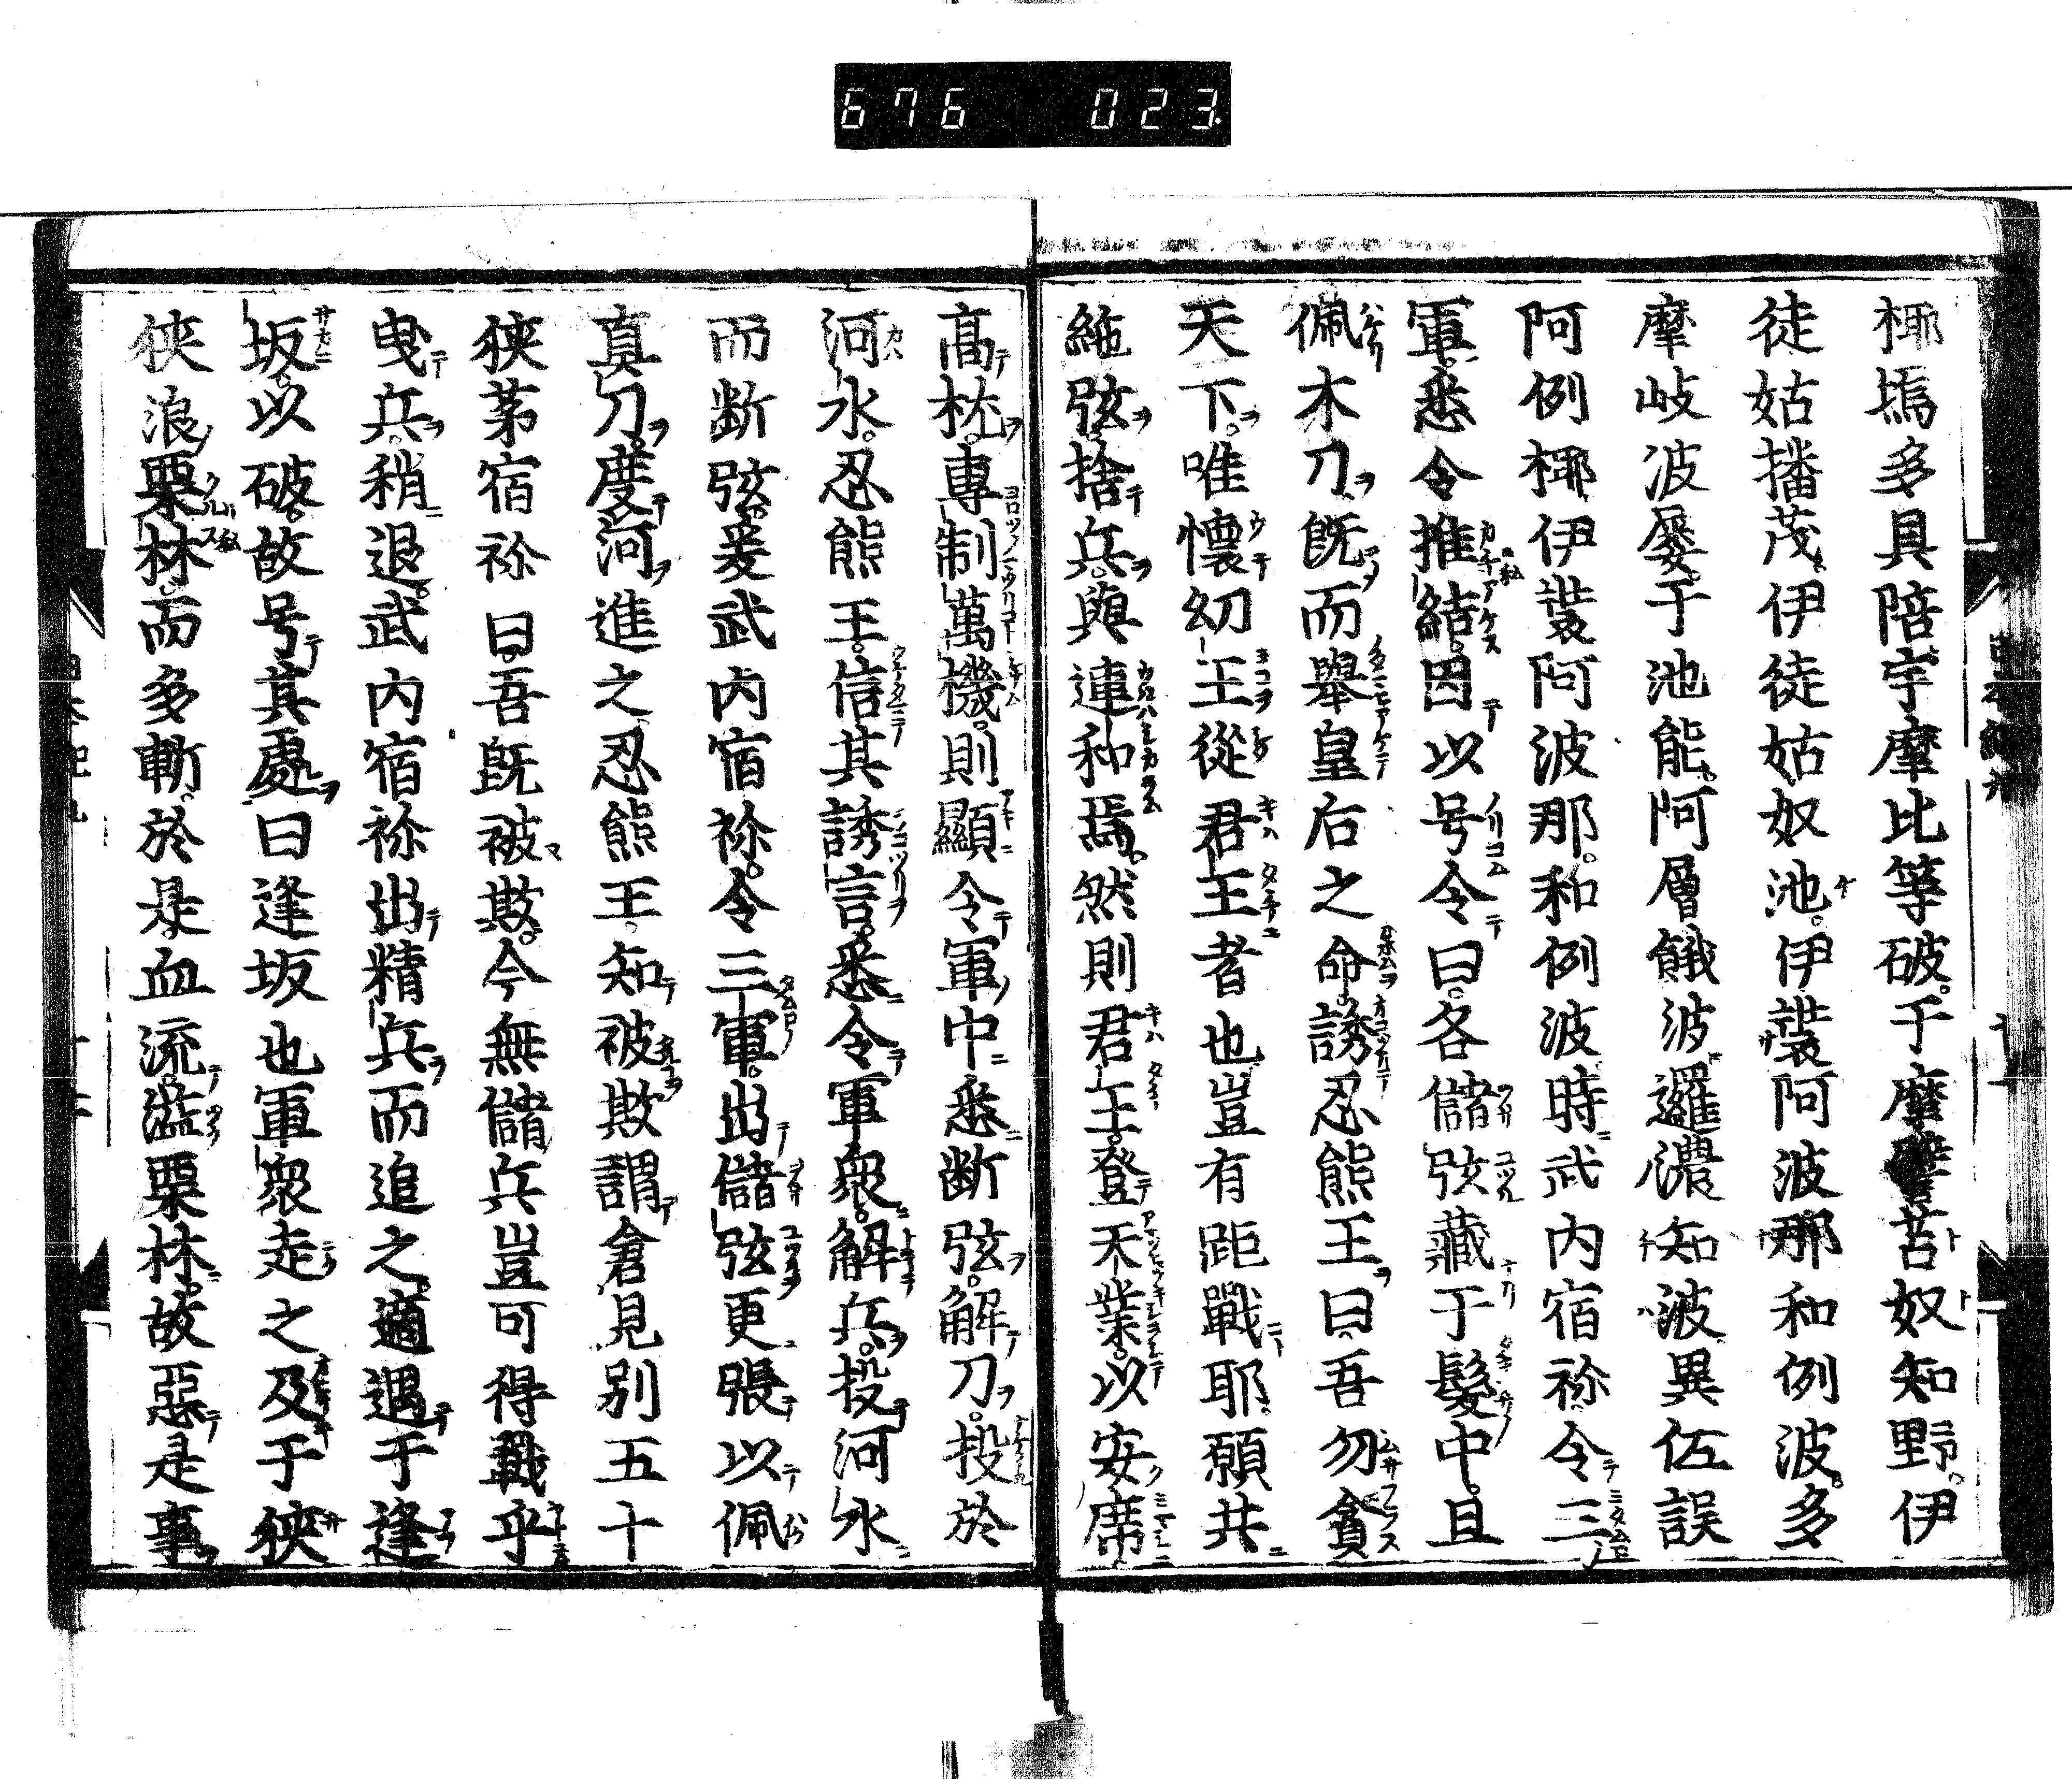 676 023
椰塢多具陪宇摩比等破于摩譬苦奴知野伊
徒姑播茂伊徒姑奴池伊裝阿波那和例波多
摩岐波屡于池能阿層餓波邏濃知波異佐誤
阿例椰伊裝阿波那和例波時武内宿祢令三
軍悉令推結因以号令曰各儲弦藏于髮中且
佩木刀既而擧皇后之命誘忍熊王曰吾勿貪
天下唯懷幼王從君王者也豈有距戰耶願共
絁弦捨兵與連和焉然則君王登天業以安席
髙枕專制萬機則顯令軍中悉断弦解刀投於
河水忍熊王信其誘言悉令軍衆解兵投河水
而断弦爰武内宿祢令三軍出儲弦更張以佩
真刀度河進之忍熊王知被欺謂倉見別五十
狹茅宿祢曰吾既被欺今無儲兵豈可得戰乎
曳兵稍退武内宿祢出精兵而追之適遇于逢
坂以破故号其處曰逢坂也軍衆走之及于狹
狹浪栗林而多斬於是血流溢栗林故惡是事